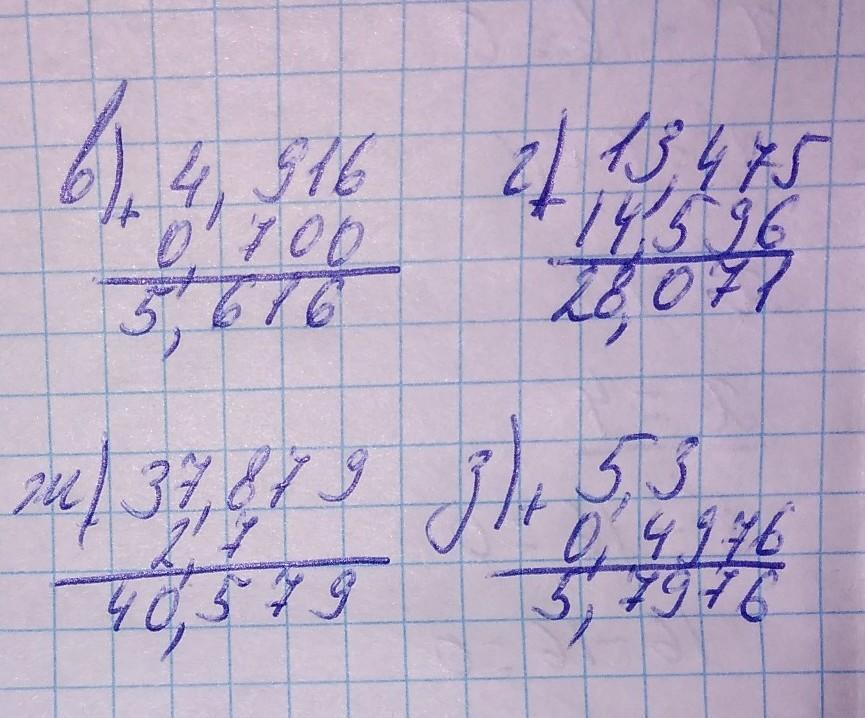 в) + 4,916
0,700
5,616
г) + 13,475
14,596
28,071
ж) + 37,879
2,7
40,579
з) + 5,3
0,4976
5,7976